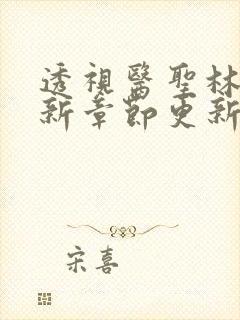 透視醫聖林
新章節更新
宋喜